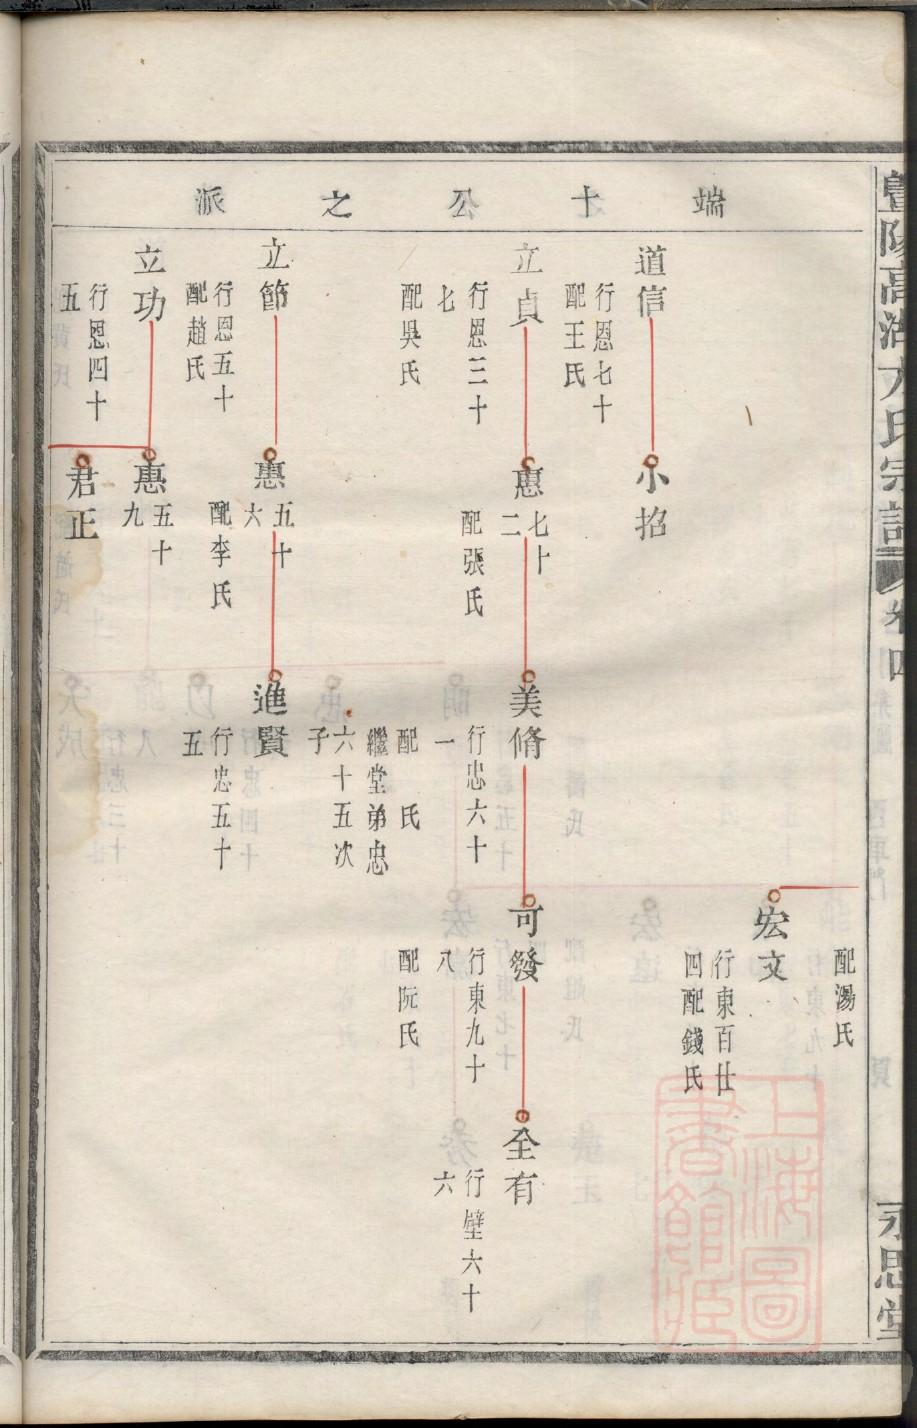 暨陽高湖方氏宗譜 卷四
永思堂
端十公之派
道信
行恩七十
配王氏
立貞
行恩三十
七
配吳氏
立節
行恩五十
配趙氏
立功
行恩四十
五
小招
惪
七十
二
配張氏
惪
五十
六
配李氏
惪
五十
九
君正
美脩
行忠六十
一
配 氏
繼堂弟忠
六十五次
子
進賢
行忠五十
五
配湯氏
宏文
行東百廿
四配錢氏
可發
行東九十
八
配阮氏
全有
行壁六十
六
上海圖
書館藏